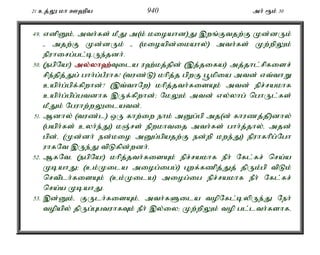 21 உத்லு மா ஊஹிய 940 அர் ரூம் 30
49. எனினும், அவர்கள் மீது அ(ம் மழையான)து இறங்குவதற்கு முன்னரும்
- அதற்கு முன்னரும் - (மழையின்மையால்) அவர்கள் முற்றிலும்
நிராசைப்பட்டிருந்தனர்.
50. (நபியே) அல்லாஹ்வுடைய ரஹ்மத்தின் (இத்தகைய) அத்தாட்சிகளைச்
சிந்தித்துப் பார்ப்பீராக! (வரண்டு) மரித்த பிறகு பூமியை அவன் எவ்வாறு
உயிர்ப்பிக்கிறான்? (இவ்வாறே) மரித்தவர்களையும் அவன் நிச்சயமாக
உயிர்ப்பிப்பவனாக இருக்கிறான்; மேலும் அவன் எல்லாப் பொருட்கள்
மீதும் பேராற்றலுடையவன்.
51. ஆனால் (வரண்ட) ஒரு காற்றை நாம் அனுப்பி அத(ன் காரணத்தி)னால்
(பயிர்கள் உலர்ந்து) மஞ்சள் நிறமாவதை அவர்கள் பார்த்தால், அதன்
பின், (முன்னர் நன்மழை அனுப்பியதற்கு நன்றி மறந்து) நிராகரிப்போ
ராகவே இருந்து விடுகின்றனர்.
52. ஆகவே, (நபியே) மரித்தவர்களையும் நிச்சயமாக நீர் கேட்கச் செய்ய
முடியாது; (உம்முடைய அழைப்பைப்) புறக்கணித்துத் திரும்பி விடும்
செவிடர்களையும் (உம்முடைய) அழைப்பை நிச்சயமாக நீர் கேட்கச்
செய்ய முடியாது.
53. இன்னும், குருடர்களையும், அவர்களுடைய வழிகேட்டிலிருந்து நேர்
வழியில் திருப்புபவராகவும் நீர் இல்லை; முற்றிலும் வழி பட்டவர்களாக,